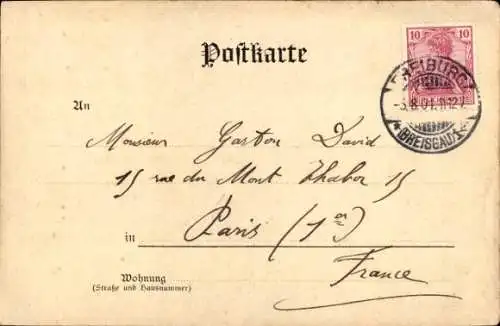 10 10
Postkarte
FREIBURG
* (BREISGAU) 1 *
An
Monsieur Gaston David
15 rue du Mont Thabor 15
in Paris (1er)
France
Wohnung
(Straße und Hausnummer)